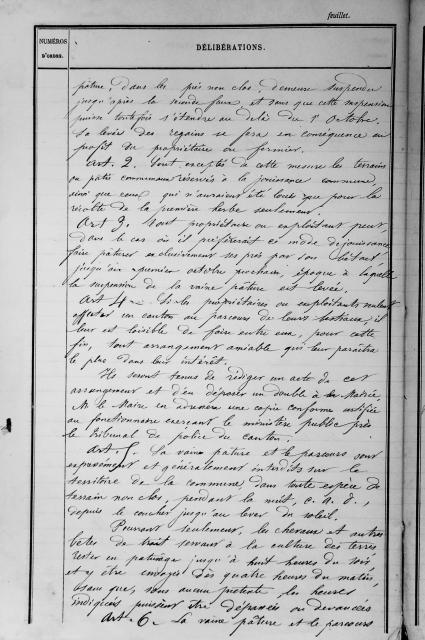 feuillet.
NUMÉROS
D'ORDRE.
DÉLIBÉRATIONS.
pâture, dans les prés non clos, demeure suspendu
jusqu'après la seconde faux, et sans que cette suspension
puisse toutefois s'étendre au delà du 1er Octobre.
La levée des regains se fera en conséquence au
profit du propriétaire ou fermier.
Art. 2. Sont exceptés de cette mesure les terrains
ou pâtis communaux réservés à la jouissance commune,
ainsi que ceux qui n'auraient été loués que pour la
récolte de la première herbe seulement.
Art 3. Tout propriétaire ou exploitant peut,
dans le cas où il préférerait ce mode de jouissance
faire pâturer exclusivement ses prés par son bétail
jusqu'au premier octobre prochain, époque à laquelle
la suspension de la vaine pâture est levée.
Art 4. Si les propriétaires ou exploitants veulent
affecter un canton au parcours de leurs bestiaux, il
leur est loisible de faire entre eux, pour cette
fin, tout arrangement amiable qui leur paraîtra
le plus dans leur intérêt.
Ils seront tenus de rédiger un acte de cet
arrangement et d'en déposer un double à la Mairie.
M. le Maire en adressera une copie conforme certifiée
au fonctionnaire exerçant le ministère public près
le Tribunal de police du canton.
Art. 5. La vaine pâture et le parcours sont
expressément et généralement interdits sur le
territoire de la commune dans toute espèce de
terrain non clos, pendant la nuit, c. a. d.
depuis le coucher jusqu'au lever du soleil.
Pourront seulement, les chevaux et autres
bêtes de trait servant à la culture des terres
rester en pâturage jusqu'à huit heures du soir,
et y être envoyés dès quatre heures du matin,
sans que, sous aucun prétexte, les heures
indiquées puissent être dépassées ou devancées
Art. 6. La vaine pâture et le parcours